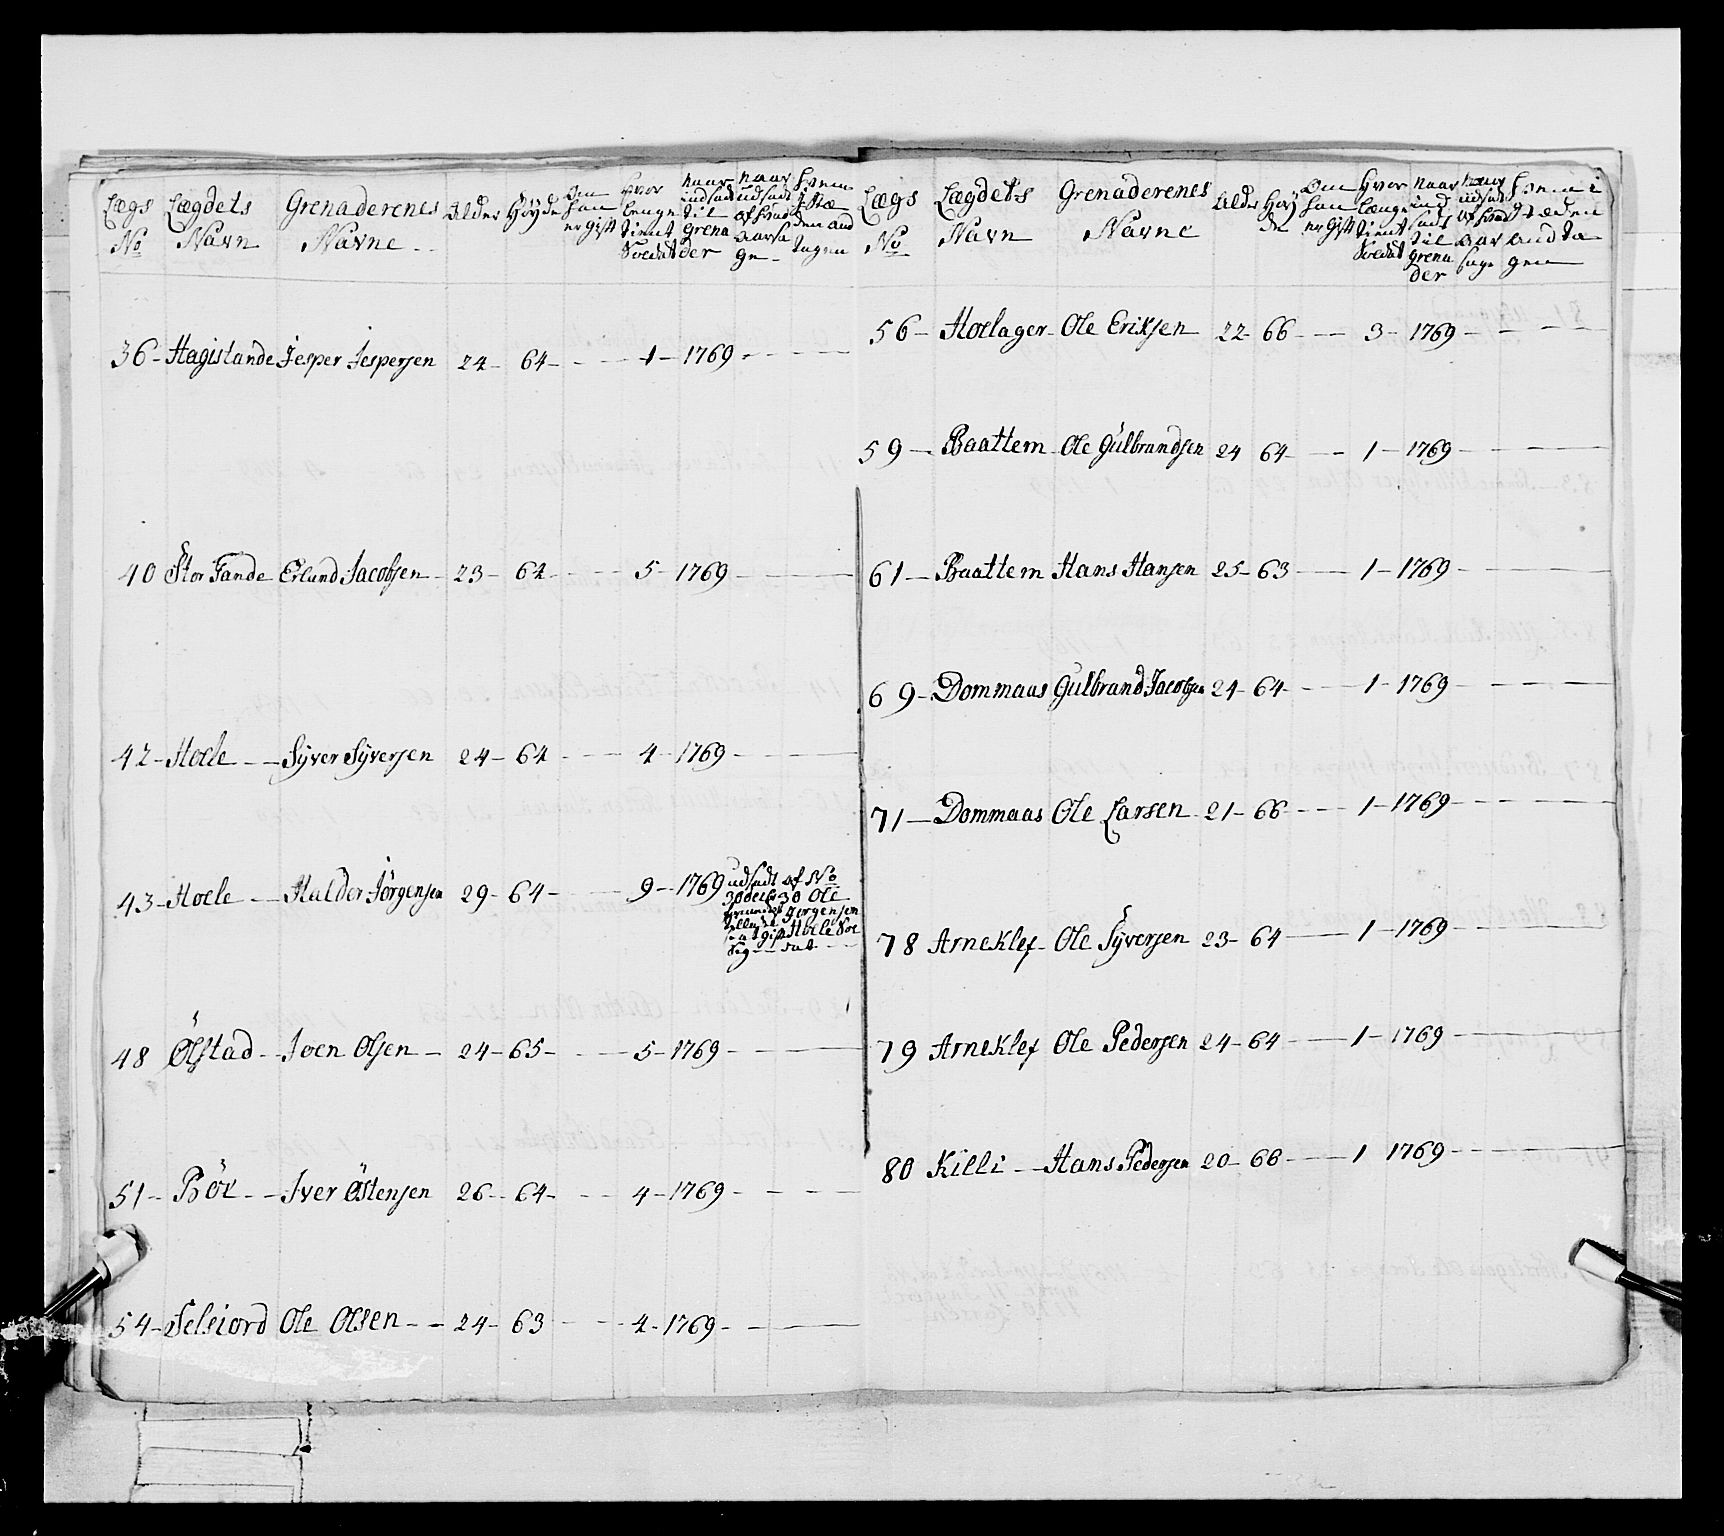 Lægs No
Lægdets Navn
Grenaderenes Navne
Alder
Höyde
Om han er gift
Hvor lenge tient Soldat
naar indsadt til Grenader
naar udsadt af hvad aarsage
hvem i Stæden andtagen
36 - Hagistande Jesper Jespersen 24 - 64 - 1 - 1769
40 Stor Fande Erlund Jacobsen 23 - 64 - 5 - 1769
42 - Hoele Syver Syversen 24 - 64 - 4 - 1769
43 - Hoele Halder Jörgensen 29 - 64 - 9 - 1769 udsadt af No 30 Ole Jörgensen Hoele
48 Ölstad Joen Olsen 24 - 65 - 5 - 1769
51 - Böe Iver Östensen 26 - 64 - 4 - 1769
54 - Selsiord Ole Olsen 24 - 63 - 4 - 1769
Lægs No
Lægdets Navn
Grenaderenes Navne
Alder
Höyden
Om han er gift
Hvor længe tient Soldat
naar indsadt til Grenader
naar udsadt af hvad aarsage
hvem i Stæden andtagen
56 - Hoelager Ole Eriksen 22 - 66 - 3 - 1769
59 - Baattem Ole Gulbrandsen 24 64 - 1 - 1769
61 - Baattem Hans Hansen 25 - 63 - 1 - 1769
69 - Dommaas Gulbrand Jacobsen 24 - 64 - 1 - 1769
71 - Dommaas Ole Larsen 21 - 66 - 1 - 1769
78 Arneklef Ole Syversen 23 - 64 - 1 - 1769
79 Arneklef Ole Pedersen 24 - 64 - 1 - 1769
80 Killi Hans Pedersen 20 - 66 - 1 1769